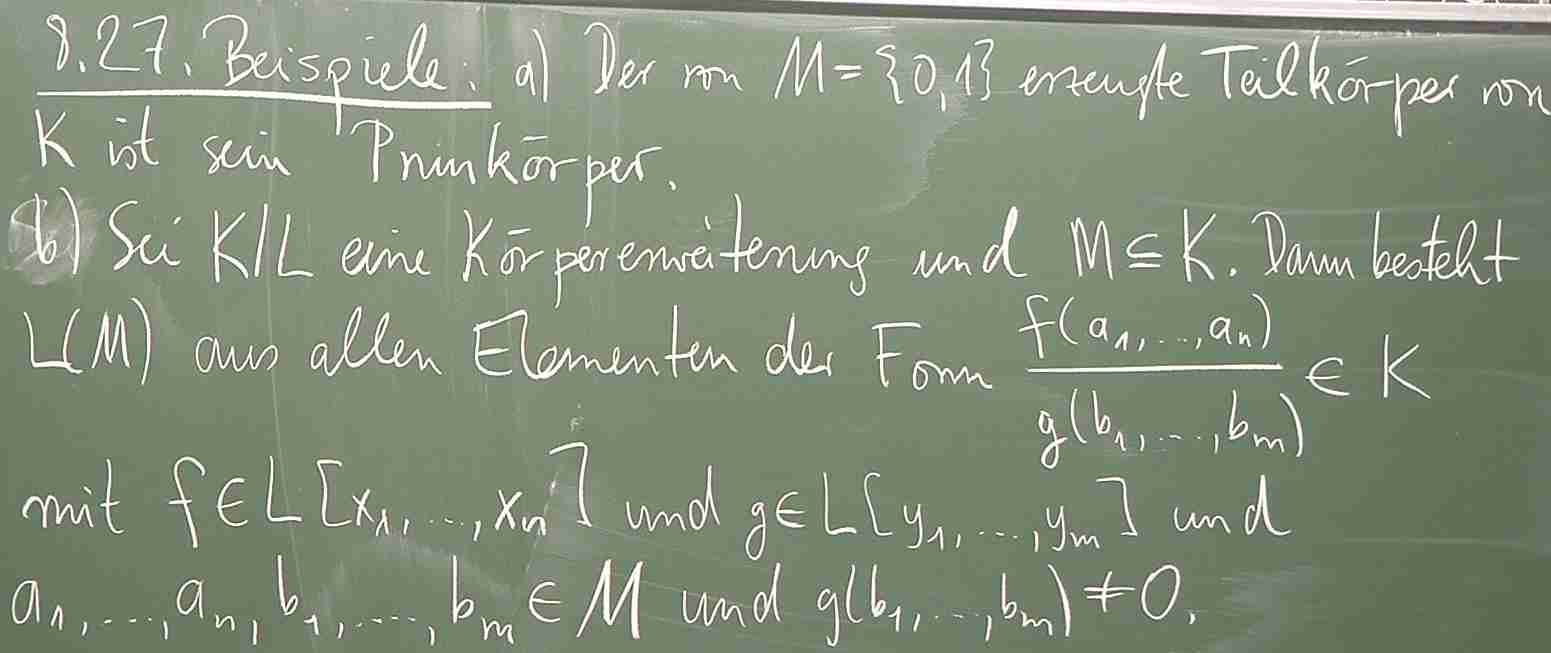 8.27. Beispiele: a) Der von M = {0,1} erzeugte Teilkörper von
K ist sein Primkörper.
b) Sei K/L eine Körpererweiterung und M ⊆ K. Dann besteht
L(M) aus allen Elementen der Form f(a₁,...,aₙ)/g(b₁,...,bₘ) ∈ K
mit f ∈ L[x₁,...,xₙ] und g ∈ L[y₁,...,yₘ] und
a₁,...,aₙ, b₁,...,bₘ ∈ M und g(b₁,...,bₘ) ≠ 0.